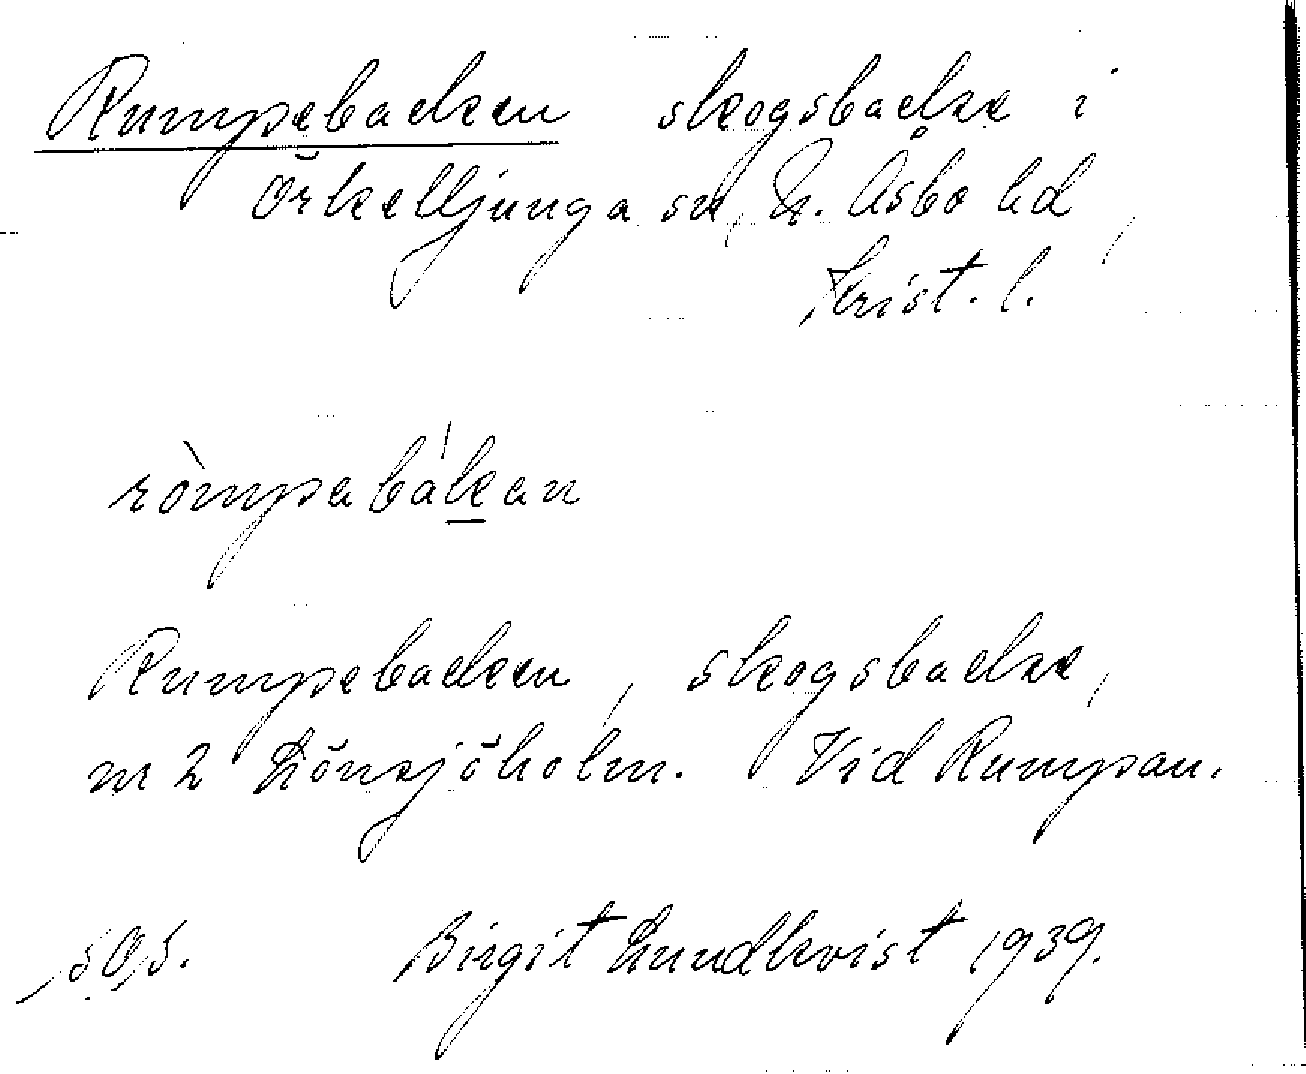 Rumpebacken skogsbacke i
Örkelljunga sn, N. Åsbo hd,
Krist. l.
ròmpabák̲an
Rumpebacken, skogsbacke,
m 2 Lönsjöholm. Vid Rumpan.
Birgit Lundkvist 1939.